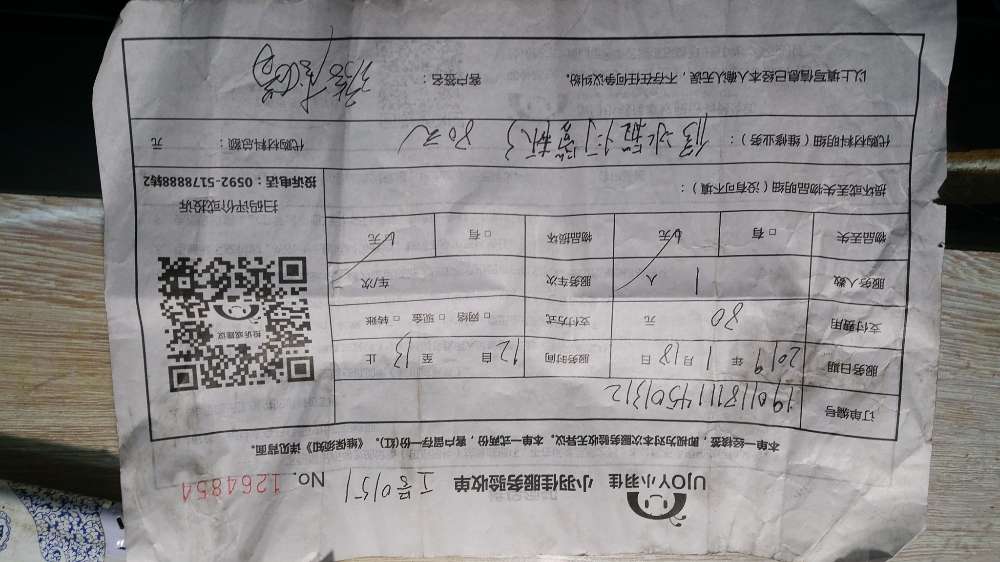 UJOY小羽佳 小羽佳服务验收单 工号0151 No. 1264854
本单一经续签,即视为对本次服务验收无异议。本单一式两份,客户留存一份(红)。《维保须知》详见背面。
订单编号 1901181114501312
服务日期 2019年1月18日 服务时间 12自 至13止
支付费用 80元 支付方式 □网络 □现金 □转账
服务人数 1人 服务车次 车/次
物品丢失 □有 □无 物品损坏 □有 □无
损坏或丢失物品明细(没有可不填):
投诉或建议
扫码评价或投诉
投诉电话:0592-5178888转2
代购材料明细(维修业务): 修水龙头 80元 代购材料总额: 元
以上填写信息已经本人确认无误,不存在任何争议纠纷。 客户签名: